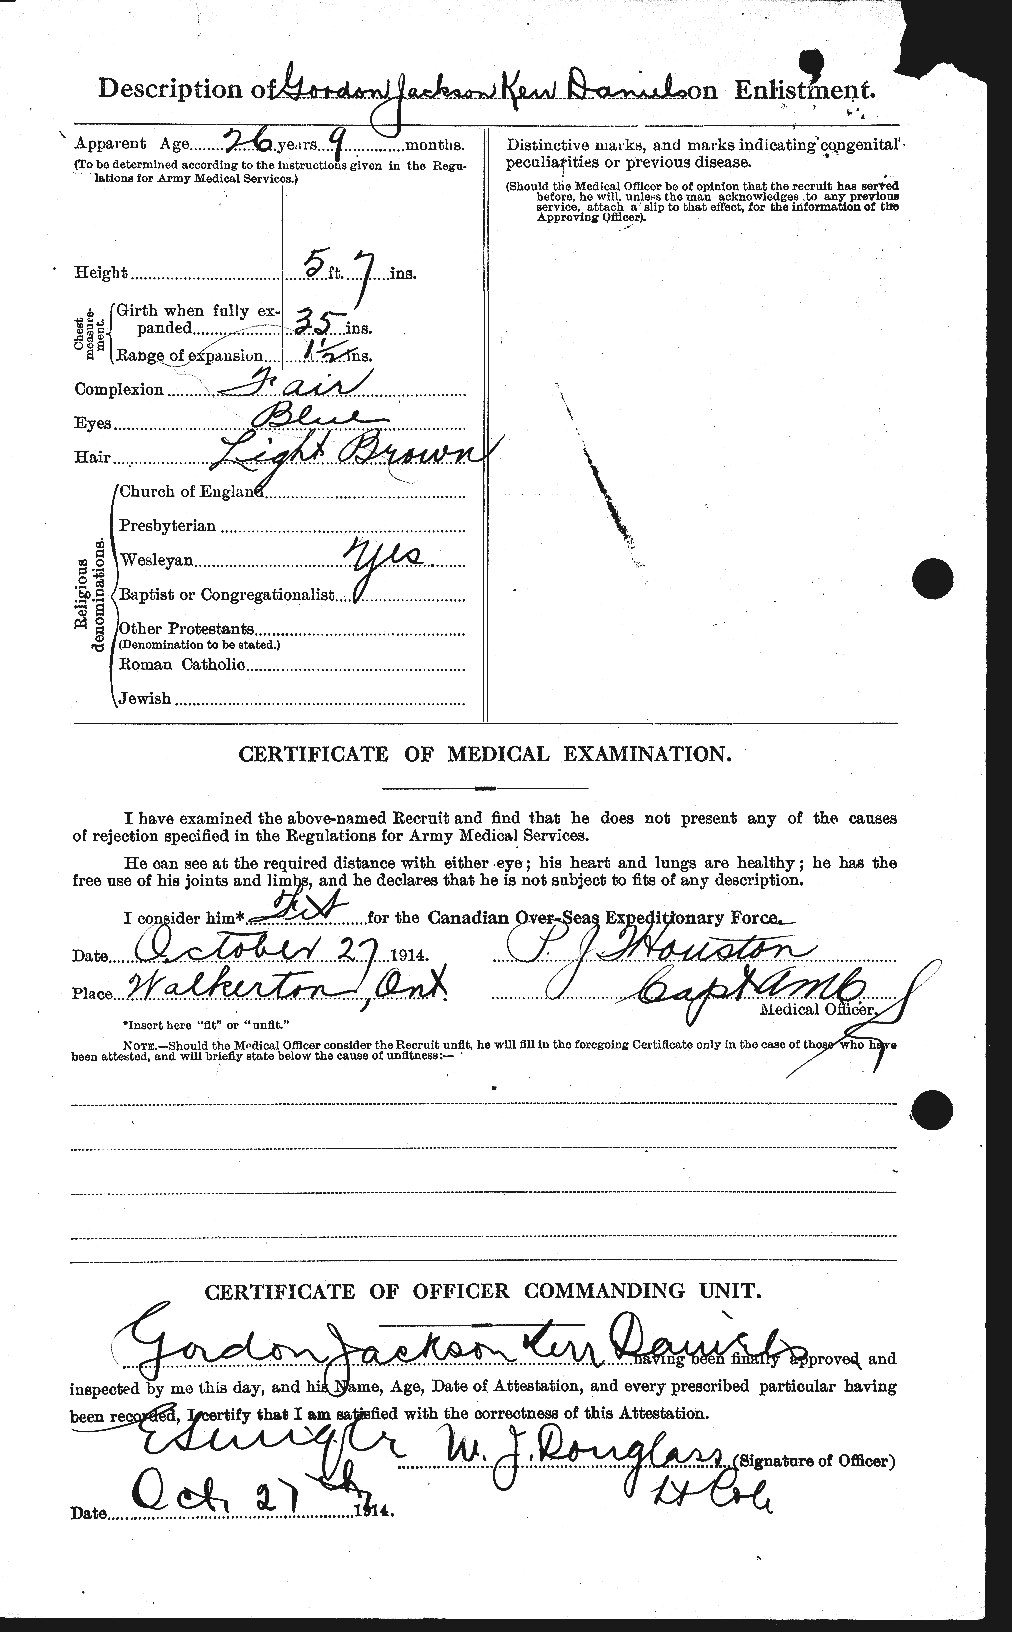 Description of Gordon Jackson Kerr Daniels on Enlistment.
Apparent Age 26 years 9 months.
(To be determined according to the instructions given in the Regu-
lations for Army Medical Services.)
Height 5 ft. 7 ins.
Chest measure-
ment.
Girth when fully ex-
panded 35 ins.
Range of expansion 1 1/2 ins.
Complexion Fair
Eyes Blue
Hair Light Brown
Religious
denominations.
Church of England
Presbyterian
Wesleyan Yes
Baptist or Congregationalist
Other Protestants
(Denomination to be stated.)
Roman Catholic
Jewish
Distinctive marks, and marks indicating congenital
peculiarities or previous disease.
(Should the Medical Officer be of opinion that the recruit has served
before, he will, unless the man acknowledges to any previous
service, attach a slip to that effect, for the information of the
Approving Officer).
CERTIFICATE OF MEDICAL EXAMINATION.
I have examined the above-named Recruit and find that he does not present any of the causes
of rejection specified in the Regulations for Army Medical Services.
He can see at the required distance with either eye; his heart and lungs are healthy; he has the
free use of his joints and limbs, and he declares that he is not subject to fits of any description.
I consider him* Fit for the Canadian Over-Seas Expeditionary Force.
Date October 27 1914. P. J. Houston
Place Walkerton, Ont. Capt AMC
Medical Officer.
*Insert here "fit" or "unfit."
NOTE.—Should the Medical Officer consider the Recruit unfit, he will fill in the foregoing Certificate only in the case of those who have
been attested, and will briefly state below the cause of unfitness:—
CERTIFICATE OF OFFICER COMMANDING UNIT.
Gordon Jackson Kerr Daniels having been finally approved and
inspected by me this day, and his Name, Age, Date of Attestation, and every prescribed particular having
been recorded, I certify that I am satisfied with the correctness of this Attestation.
W. J. Douglass (Signature of Officer)
Lt Col
Date Oct 27th 1914.